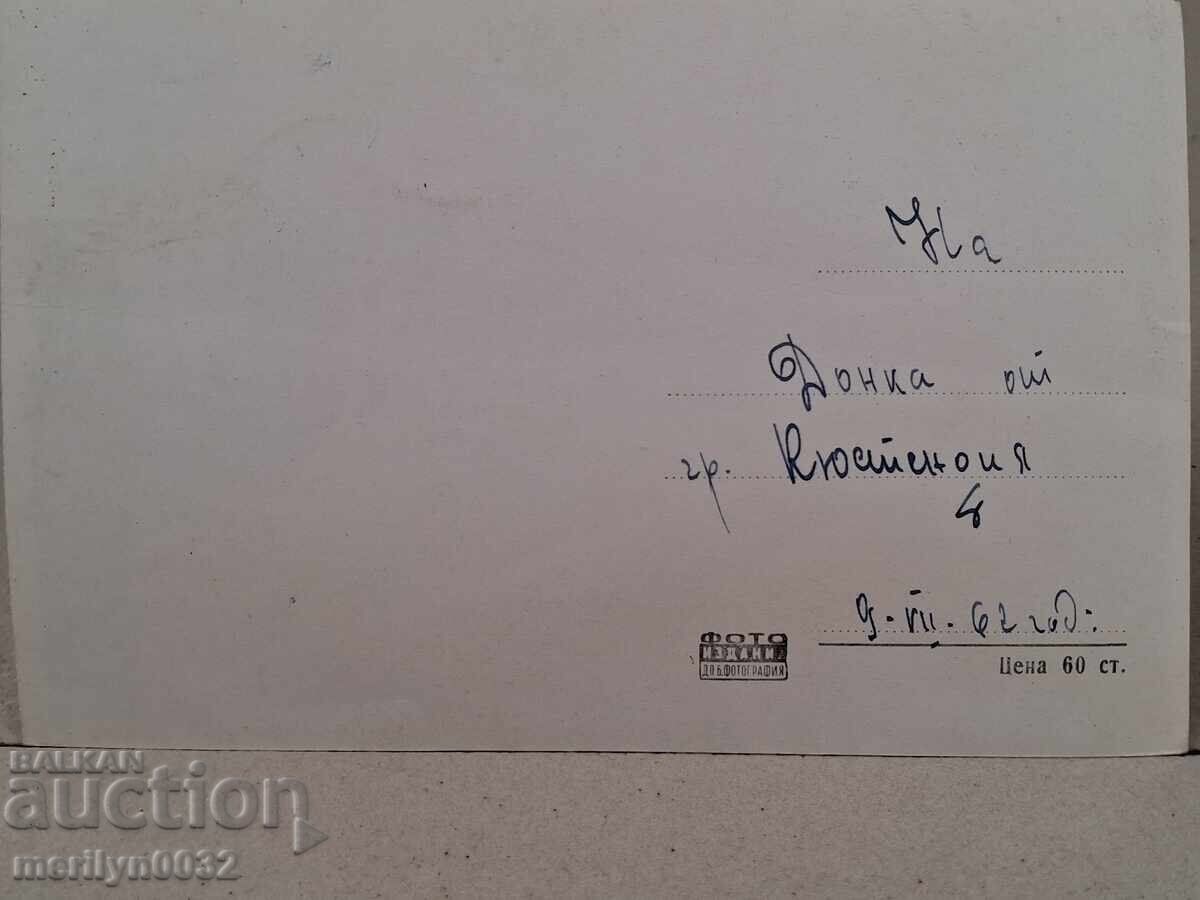 На
Донка от
гр. Кюстендил
9. VII. 62 год.
ФОТО
ИЗДАНИ
ДП Б.ФОТОГРАФИЯ
Цена 60 ст.
BALKAN
auction
merilyn0032